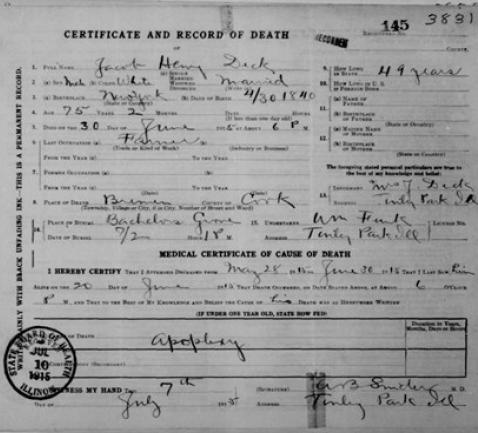 3831
CERTIFICATE AND RECORD OF DEATH
145
OF
RECORDED
1. FULL NAME Jacob Henry Deck
2. (a) SEX Male (b) COLOR White (c) SINGLE MARRIED WIDOWED DIVORCED Married
9. HOW LONG IN STATE 49 years
3. (a) BIRTHPLACE New York (b) DATE OF BIRTH 4/30 1840
(State or Country)
HOW LONG IN U. S. IF FOREIGN BORN
4. AGE 75 YEARS 2 MONTHS DAYS HOURS
(If less than one day old)
(a) NAME OF FATHER
5. DIED ON THE 30 DAY OF June 1915 AT ABOUT 6 P M.
(b) BIRTHPLACE OF FATHER
(State or Country)
6. LAST OCCUPATION (a) Farmer (b)
(Trade or Kind of Work) (Industry or Business)
(a) MAIDEN NAME OF MOTHER
FROM THE YEAR (a) TO THE YEAR (b)
(b) BIRTHPLACE OF MOTHER
(State or Country)
7. FORMER OCCUPATION (a) (b)
FROM THE YEAR (a) TO THE YEAR (b)
The foregoing stated personal particulars are true to the best of my knowledge and belief:
8. PLACE OF DEATH Bremen COUNTY OF Cook
(Township, Village or City; if in City, Number of Street and Ward)
INFORMANT Mrs J. Deck
ADDRESS Tinley Park Ill
PLACE OF BURIAL Bachelors Grove
15. UNDERTAKER Wm Funk LICENSE NO.
DATE OF BURIAL 7/2 HOUR 1 P M.
ADDRESS Tinley Park Ill
MEDICAL CERTIFICATE OF CAUSE OF DEATH
I HEREBY CERTIFY THAT I ATTENDED DECEASED FROM May 28 1915 June 30 1915 THAT I LAST SAW him
ALIVE ON THE 20 DAY OF June 1915 THAT DEATH OCCURRED, ON DATE STATED ABOVE, AT ABOUT 6 O'CLOCK
P M., AND THAT TO THE BEST OF MY KNOWLEDGE AND BELIEF THE CAUSE OF his DEATH WAS AS HEREUNDER WRITTEN
(IF UNDER ONE YEAR OLD, STATE HOW FED)
DURATION IN YEARS, MONTHS, DAYS OR HOURS
OF DEATH Apoplexy
CONTRIBUTORY (SECONDARY)
STATE BOARD OF HEALTH
JUL
10
1915
ILLINOIS
WITNESS MY HAND THIS 7th
(SIGNATURE) M. D.
DAY OF July 1915
ADDRESS Tinley Park Ill
WRITE PLAINLY WITH BLACK UNFADING INK—THIS IS A PERMANENT RECORD.